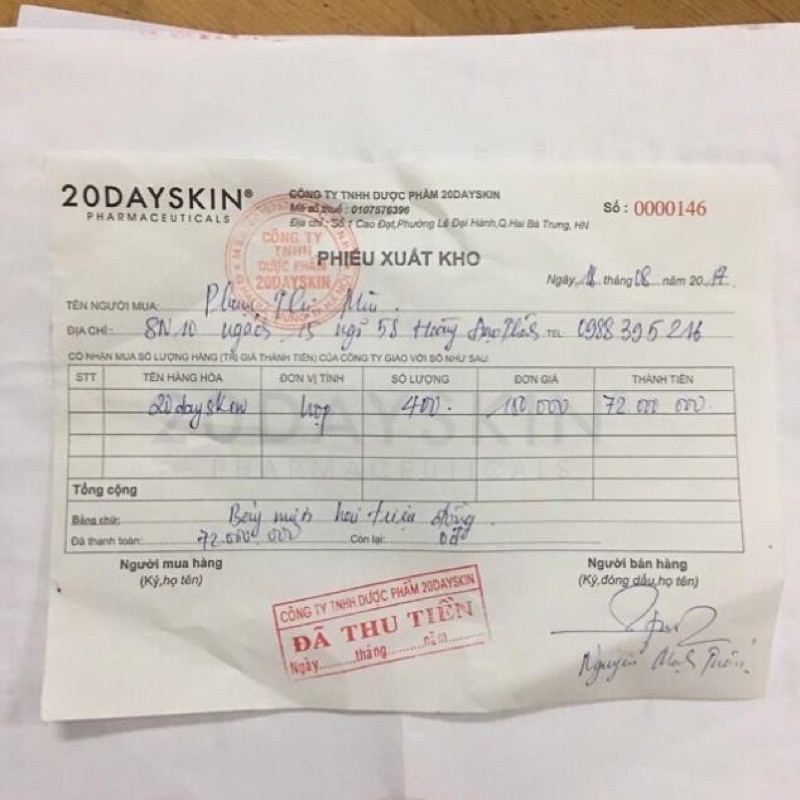 20DAYSKIN®
PHARMACEUTICALS
CÔNG TY TNHH DƯỢC PHẨM 20DAYSKIN
Mã số thuế : 0107576396
Địa chỉ : Số 1 Cao Đạt,Phường Lê Đại Hành,Q.Hai Bà Trưng, HN
Số : 0000146
CÔNG TY
TNHH
DƯỢC PHẨM
20DAYSKIN
PHIẾU XUẤT KHO
Ngày 18 tháng 08 năm 2017
TÊN NGƯỜI MUA: Phạm Thị
ĐỊA CHỈ: SN 10 ngách 15 ngõ 58 Hoàng Đạo Thành TEL 0988 395 216
CÓ NHẬN MUA SỐ LƯỢNG HÀNG (TRỊ GIÁ THÀNH TIỀN) CỦA CÔNG TY GIAO VỚI SỐ NHƯ SAU:
STT TÊN HÀNG HÓA ĐƠN VỊ TÍNH SỐ LƯỢNG ĐƠN GIÁ THÀNH TIỀN
20dayskin hộp 400 180 000 72 000 000
20DAYSKIN
PHARMACEUTICALS
Tổng cộng
Bằng chữ: Bảy mươi hai triệu đồng
Đã thanh toán: 72.000.000 Còn lại: 0đ
Người mua hàng Người bán hàng
(Ký,họ tên) (Ký,đóng dấu,họ tên)
CÔNG TY TNHH DƯỢC PHẨM 20DAYSKIN
ĐÃ THU TIỀN
Ngày.........tháng.........năm.........
Nguyễn Mạnh Tuấn